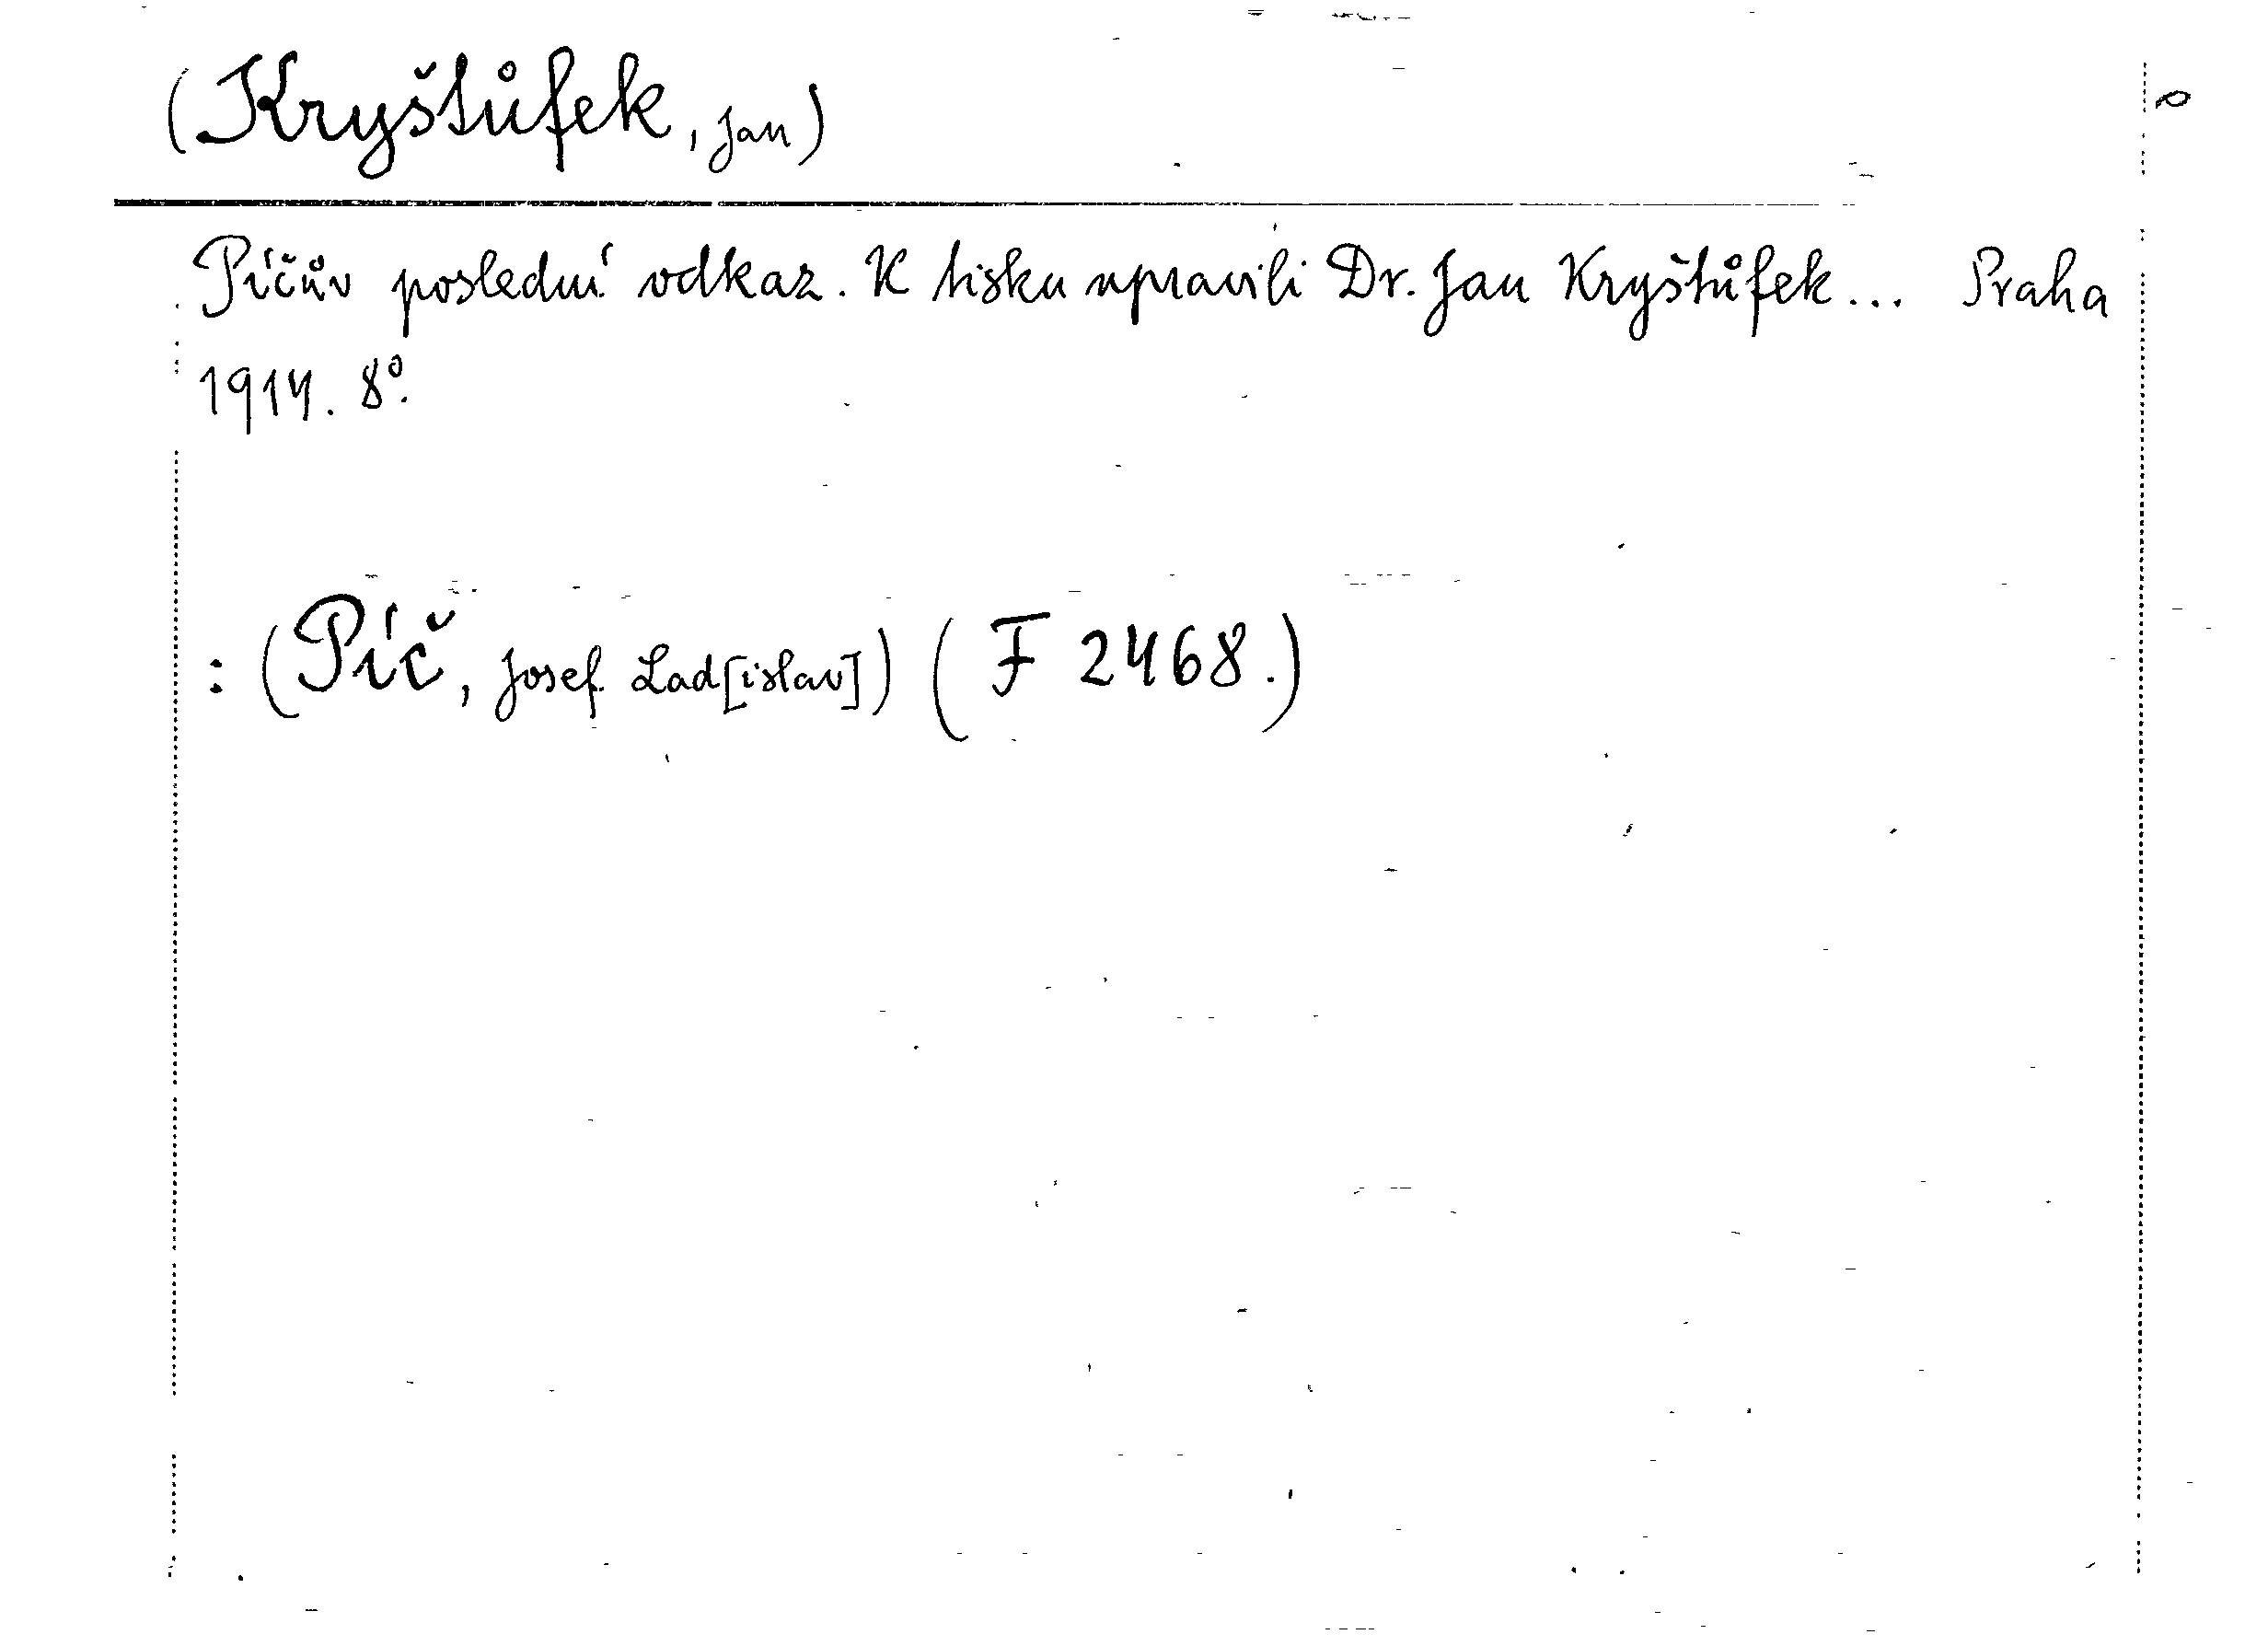 (Kryštůfek, Jan)
Píčův poslední odkaz. K tisku upravili Dr. Jan Kryštůfek... Praha
1914. 8°.
: (Píč, Josef Lad[islav]) (F 2468.)